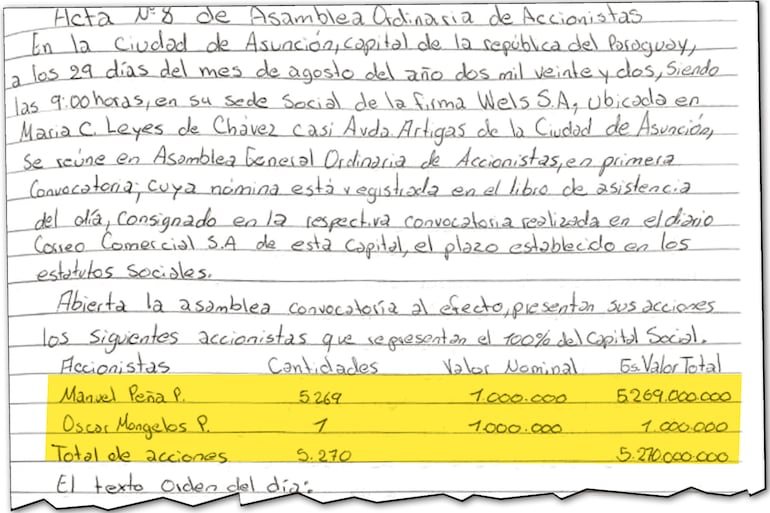 Acta Nº 8 de Asamblea Ordinaria de Accionistas
En la Ciudad de Asunción, capital de la república del Paraguay,
a los 29 días del mes de agosto del año dos mil veinte y dos, Siendo
las 9:00 horas, en su sede Social de la firma Wels S.A, Ubicada en
Maria C. Leyes de Chávez casi Avda. Artigas de la Ciudad de Asunción,
se reúne en Asamblea General Ordinaria de Accionistas, en primera
Convocatoria; cuya nómina está registrada en el libro de asistencia
del día, consignado en la respectiva convocatoria realizada en el diario
Correo Comercial S.A de esta Capital, el plazo establecido en los
estatutos Sociales.
Abierta la asamblea convocatoria al efecto, presentan sus acciones
los siguientes accionistas que representan el 100% del Capital Social.
Accionistas Cantidades Valor Nominal Gs. Valor Total
Manuel Peña P. 5269 1.000.000 5.269.000.000
Oscar Mongelos P. 1 1.000.000 1.000.000
Total de acciones 5.270 5.270.000.000
El texto Orden del día: